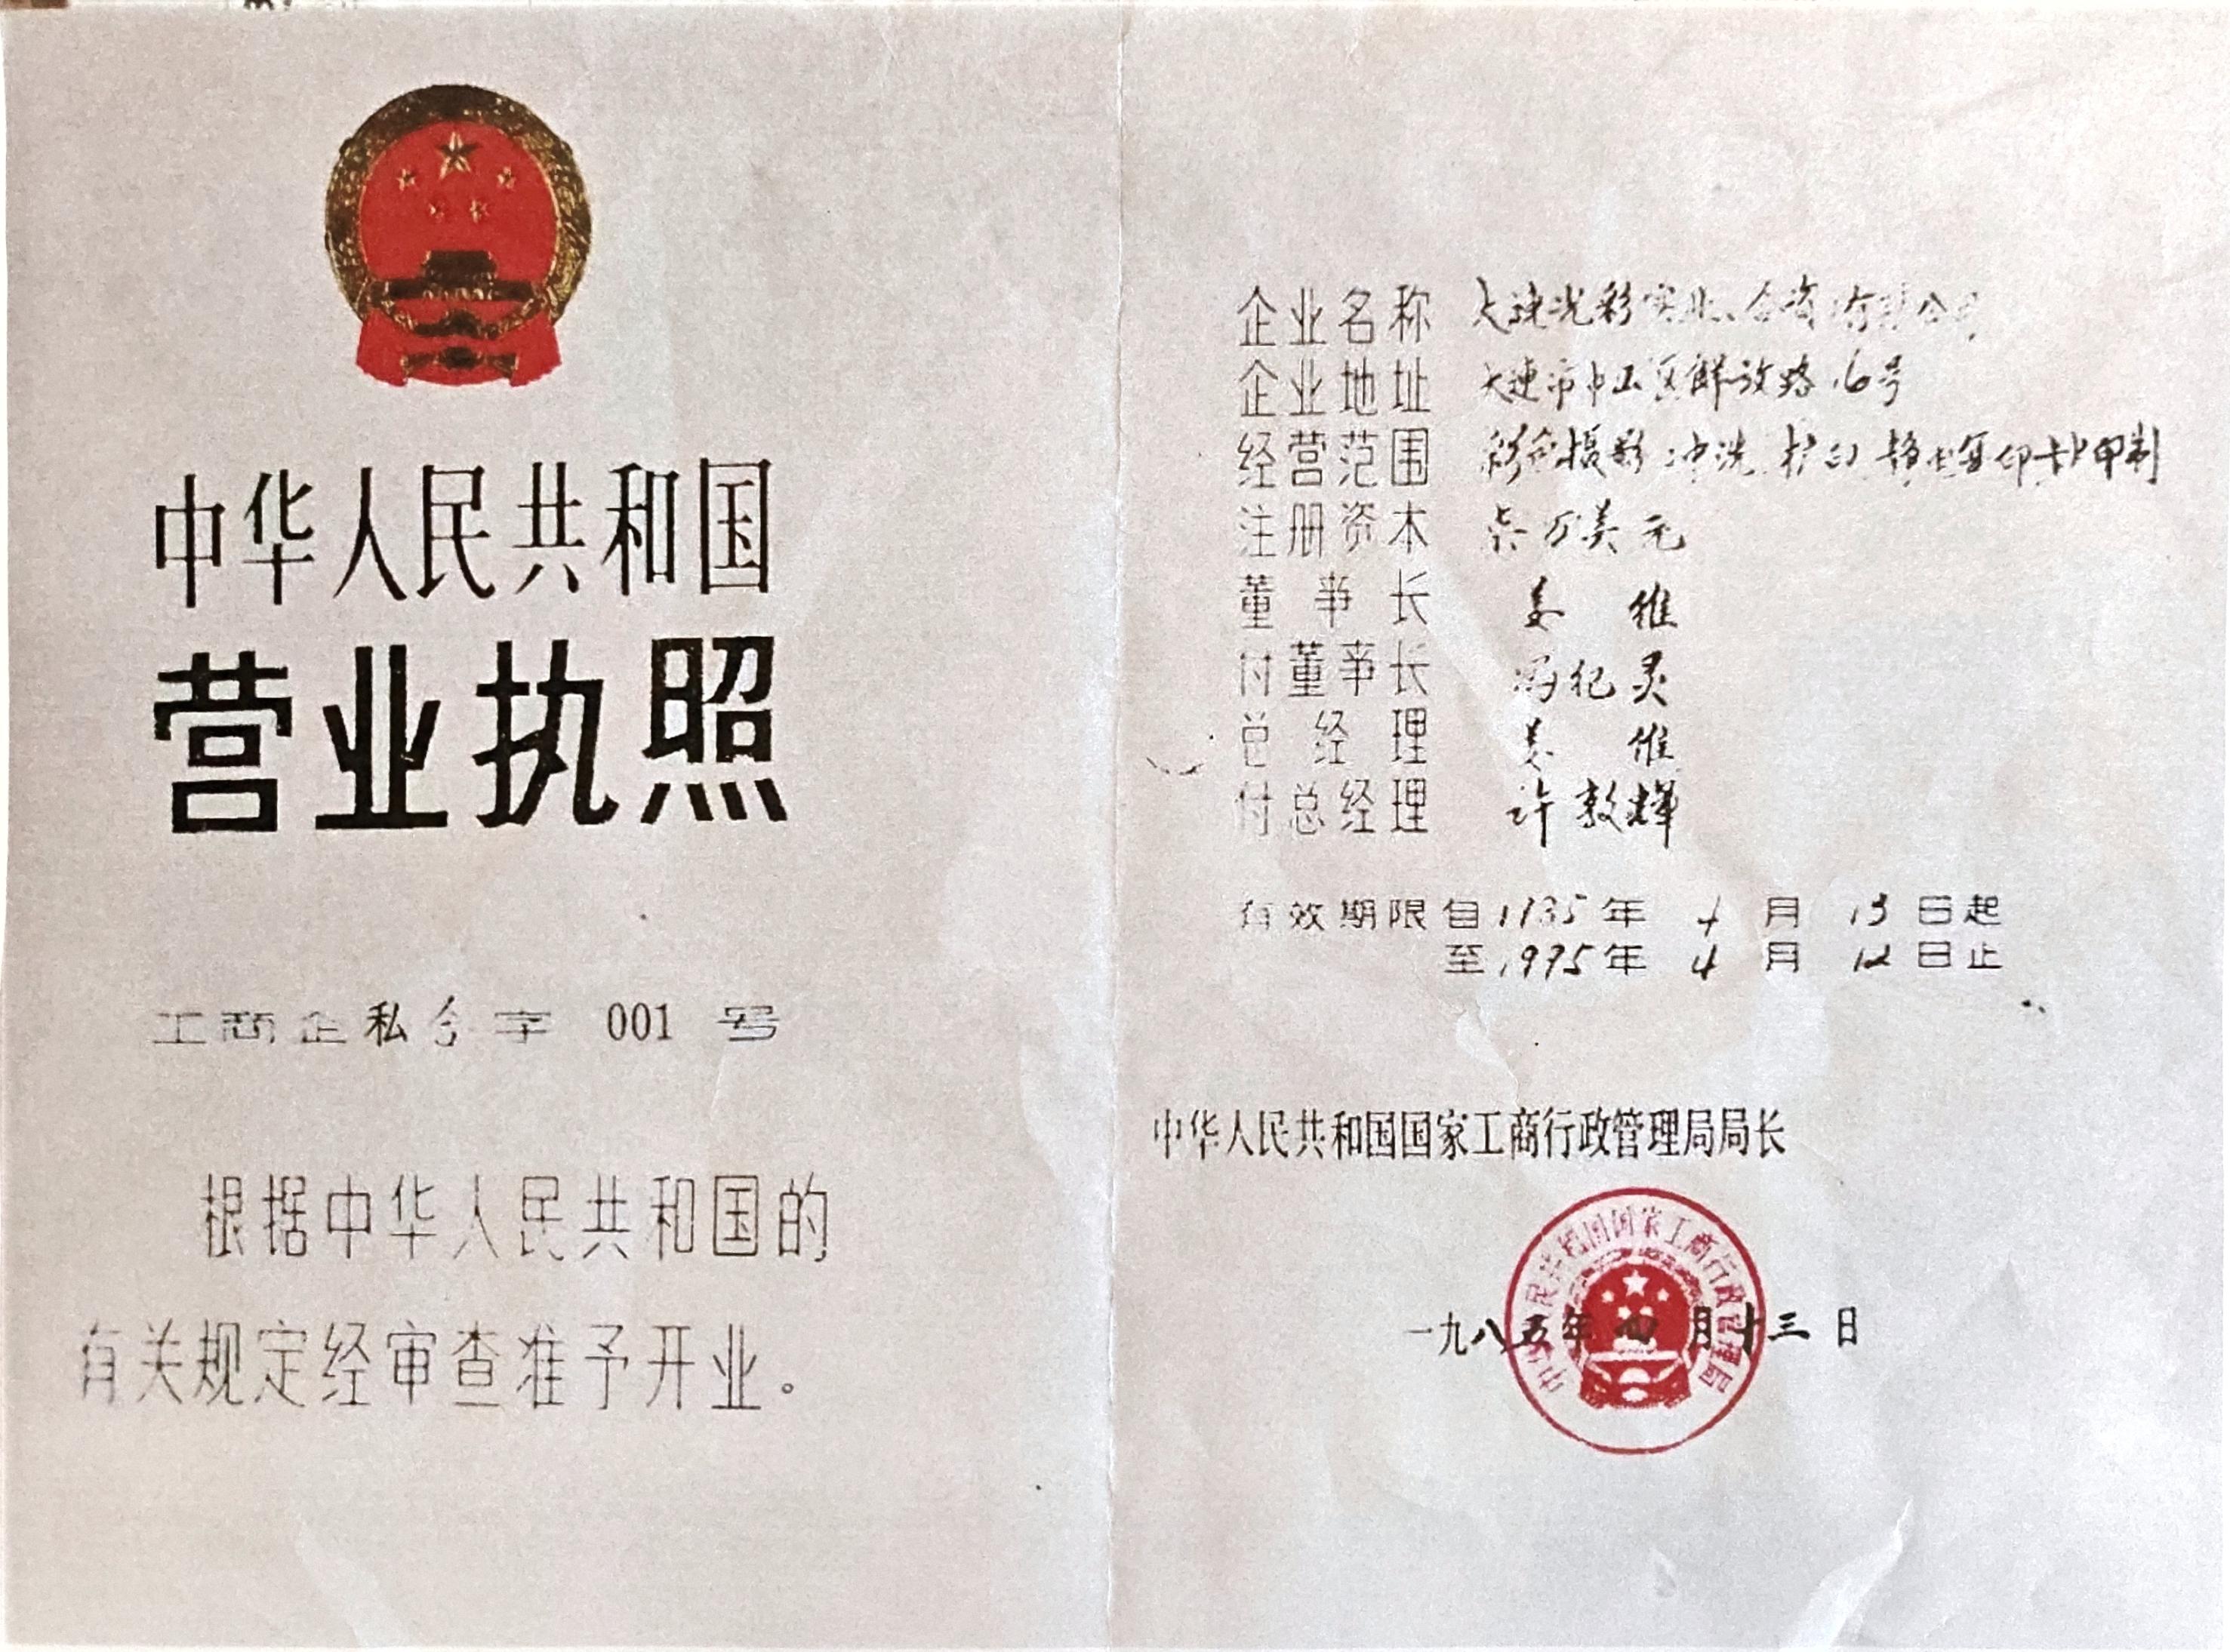 中华人民共和国
营业执照
工商企私合字 001 号
根据中华人民共和国的
有关规定经审查准予开业。
企业名称 大连光彩实业合资有限公司
企业地址 大连市中山区解放路16号
经营范围 彩色摄影 冲洗 扩印 静电复印
注册资本 万美元
董事长 姜维
付董事长 冯纪灵
总经理 姜维
付总经理 许敦辉
有效期限自1985年 4 月 13 日起
至1995年 4 月 12 日止
中华人民共和国国家工商行政管理局局长
中华人民共和国国家工商行政管理局
一九八五年四月十三日